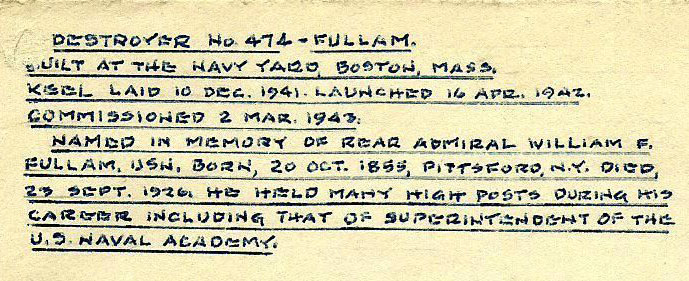 DESTROYER No. 474 - FULLAM.
BUILT AT THE NAVY YARD, BOSTON, MASS.
KEEL LAID 10 DEC. 1941. LAUNCHED 16 APR. 1942.
COMMISSIONED 2 MAR. 1943.
NAMED IN MEMORY OF REAR ADMIRAL WILLIAM F.
FULLAM, USN. BORN, 20 OCT. 1855, PITTSFORD, N.Y. DIED,
23 SEPT. 1926. HE HELD MANY HIGH POSTS DURING HIS
CAREER INCLUDING THAT OF SUPERINTENDENT OF THE
U.S. NAVAL ACADEMY.